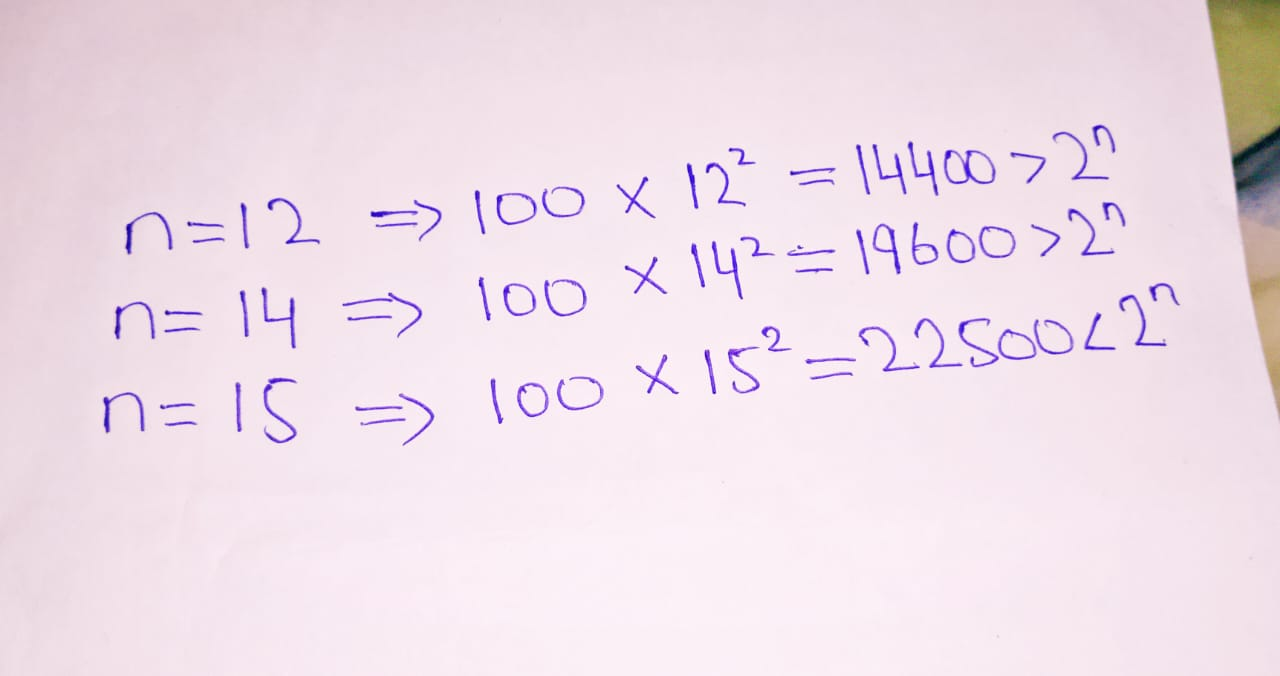 n=12 => 100 × 12² = 14400 > 2ⁿ
n= 14 => 100 × 14² = 19600 > 2ⁿ
n= 15 => 100 × 15² = 22500 < 2ⁿ